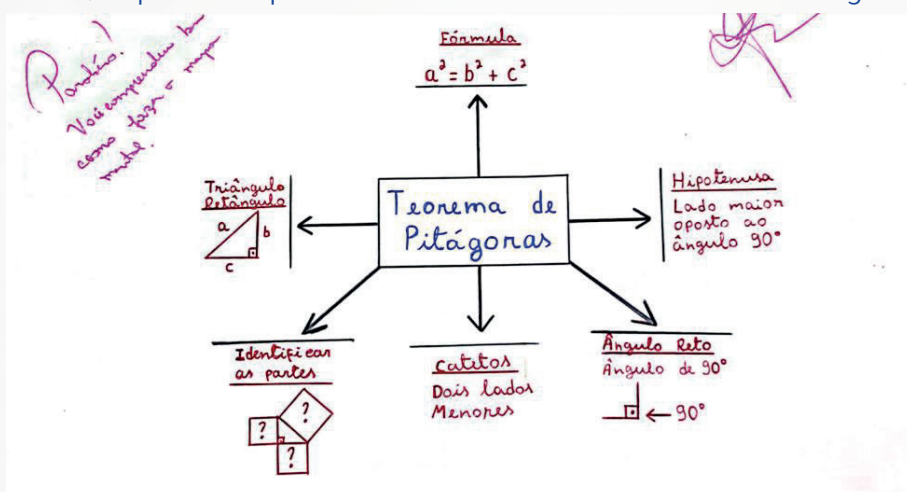 Parabéns!
Você compreendeu bem
como fazer o mapa
mental.
Fórmula
a² = b² + c²
Teorema de
Pitágoras
Triângulo
Retângulo
a
b
c
Hipotenusa
Lado maior
oposto ao
ângulo 90°
Identificar
as partes
?
?
?
Catetos
Dois lados
Menores
Ângulo Reto
Ângulo de 90°
← 90°